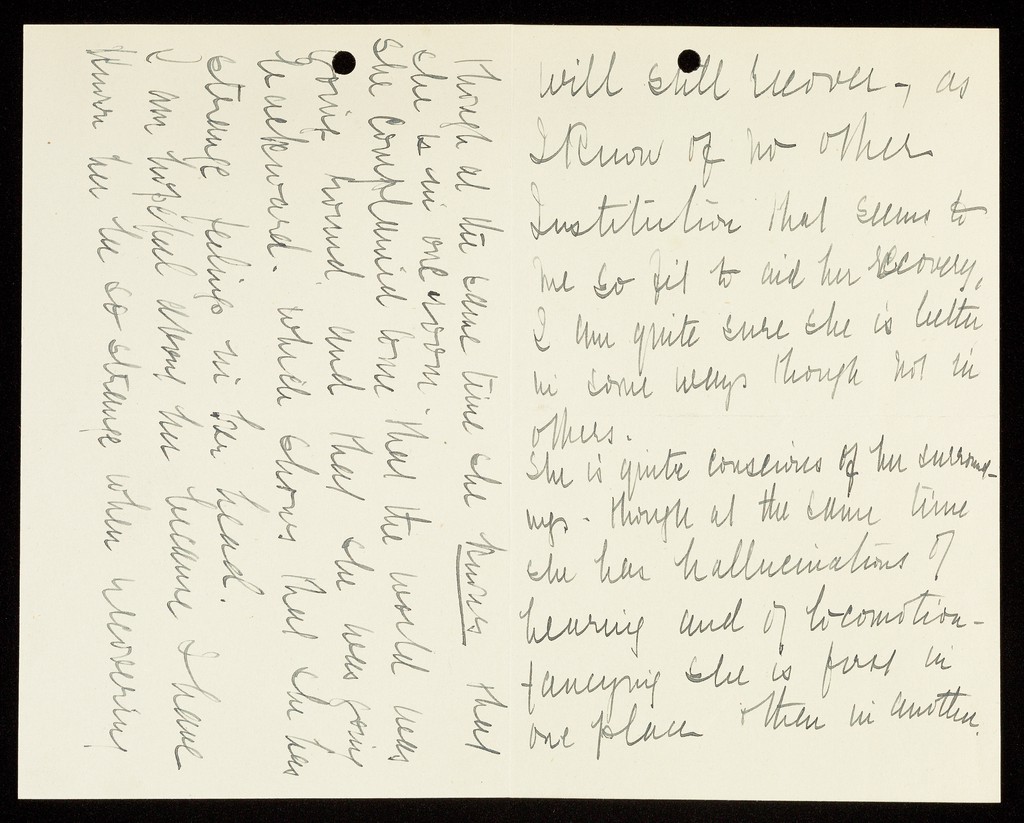 will still recover -, as
I know of no other
Institution that seems to
me so fit to aid her recovery,
I am quite sure she is better
in some ways though not in
others.
She is quite conscious of her surround-
ings - though at the same time
she has hallucinations of
hearing and of locomotion -
fancying she is first in
one place then in another.
though at the same time she knows that
she is in one room. that the world was
she complained to me
going round and that she was going
backward. which shows that she has
strange feelings in her head.
I am hopeful about her because I have
known her be so strange when recovering